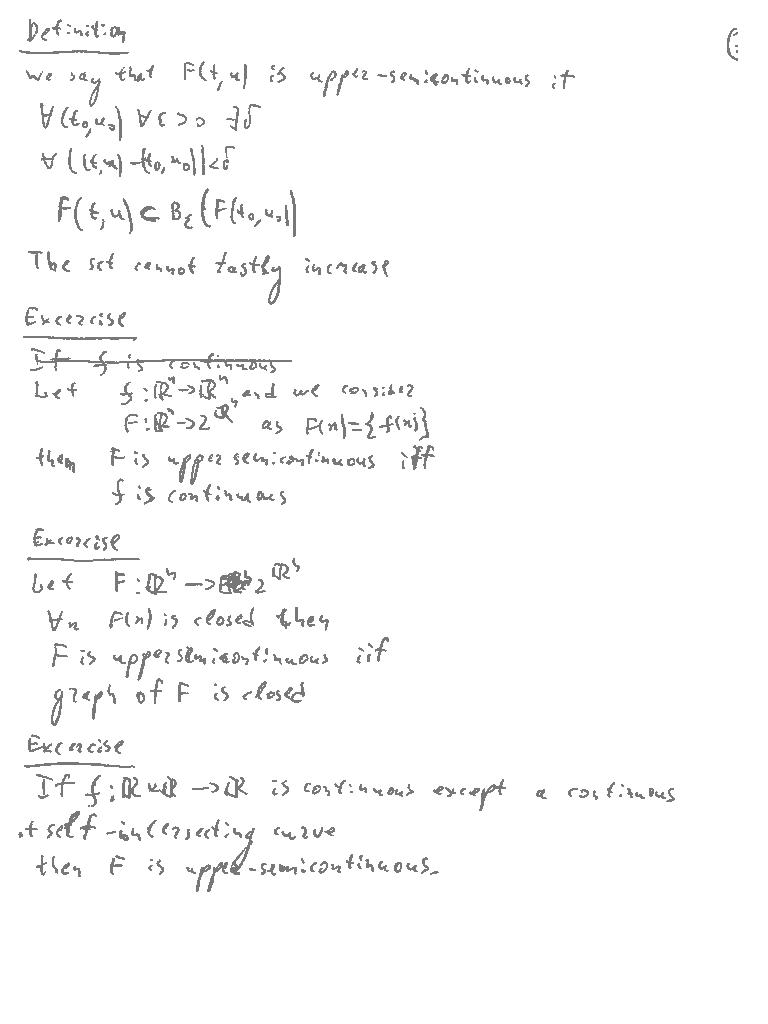 Definition
We say that F(t,u) is upper-semicontinuous if
∀(t₀,u₀) ∀ε>0 ∃δ
∀ |(t,u)-(t₀,u₀)|<δ
F(t,u) ⊂ B_ε(F(t₀,u₀))
The set cannot fastly increase
Excercise
If f is continuous
Let f:ℝⁿ→ℝⁿ and we consider
F:ℝⁿ→2^ℝⁿ as F(x)={f(x)}
then F is upper semicontinuous iff
f is continuous
Excercise
Let F:ℝⁿ → 2^ℝⁿ
∀x F(x) is closed then
F is uppersemicontinuous iif
graph of F is closed
Excercise
If f:ℝ×ℝ→ℝ is continuous except a continuous
self-intersecting curve
then F is upper-semicontinuous.